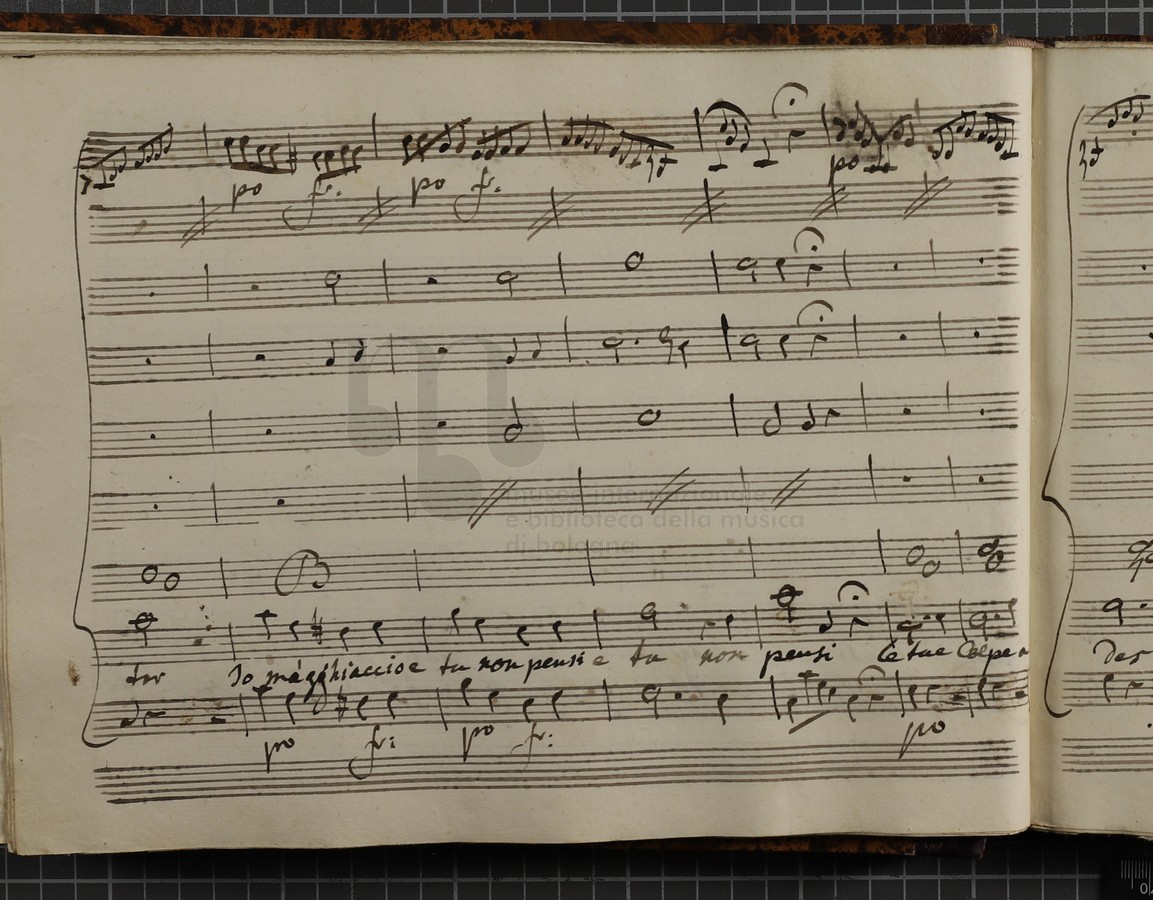 po fr: po fr. po
museo internazionale
e biblioteca della musica
di bologna
tor Io m'agghiaccio e tu non pensi e tu non pensi Le tue Colpe a
po fr: po fr: po